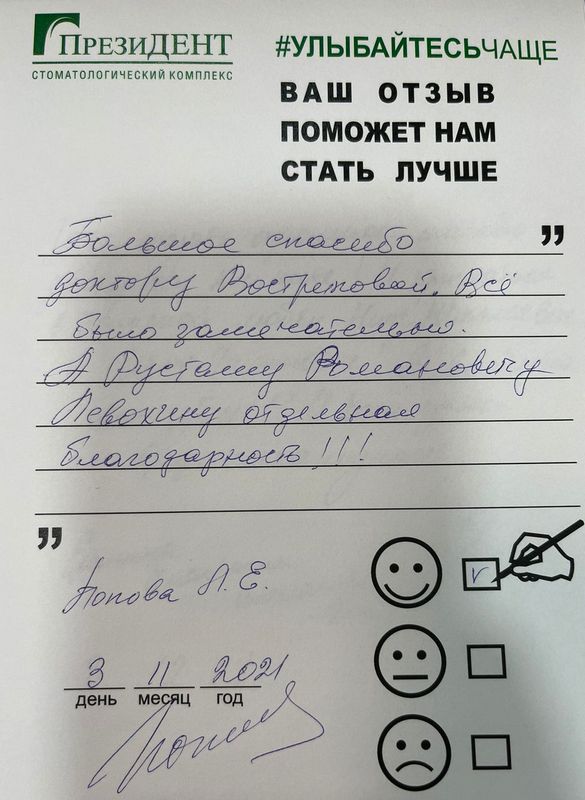 ПРЕЗИДЕНТ
СТОМАТОЛОГИЧЕСКИЙ КОМПЛЕКС
#УЛЫБАЙТЕСЬЧАЩЕ
ВАШ ОТЗЫВ
ПОМОЖЕТ НАМ
СТАТЬ ЛУЧШЕ
Большое спасибо
доктору Востриковой. Всё
было замечательно.
А Рустаму Романовичу
Левохину отдельная
благодарность!!!
Попова Л. Е.
3 11 2021
день месяц год